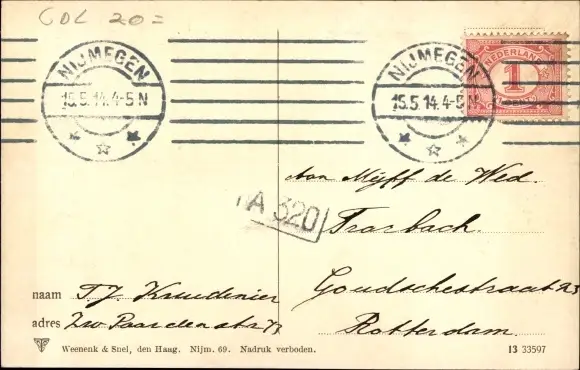 COL 20=
NIJMEGEN
15.5.14.4-5 N
NIJMEGEN
15.5.14.4-5 N
NEDERLAND
1
CENT
A 320
Aan Mijff de Wed.
Trarbach.
Goudschestraat 23
Rotterdam
naam T.J. Kruidenier
adres Zw. Paardenstr. 73
Weenenk & Snel, den Haag. Nijm. 69. Nadruk verboden.
13 33597